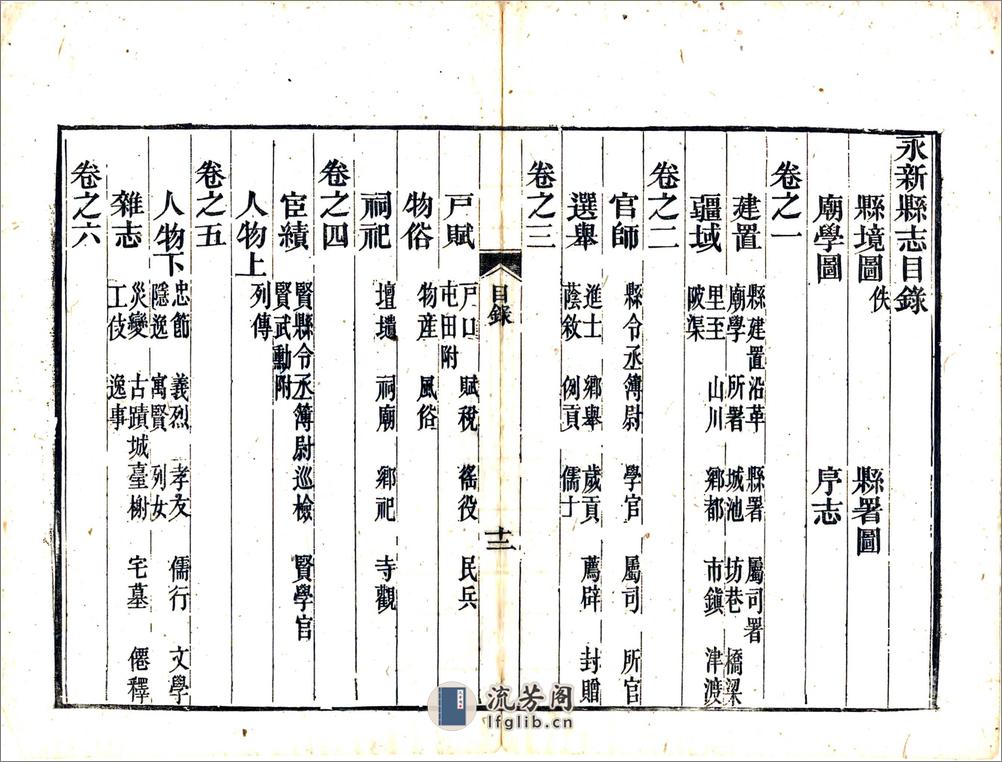 永新縣志目錄
縣境圖佚 縣署圖
廟學圖 序志
卷之一
建置 縣建置沿革 縣署 屬司署
廟學 所署 城池 坊巷 橋梁
疆域 里至 山川 鄉都 市鎮 津渡
陂渠
卷之二
官師 縣令丞簿尉 學官 屬司 所官
選舉 進士 鄉舉 歲貢 薦辟 封贈
蔭敘 例貢 儒士
卷之三
目錄
十二
戸賦 戸口 賦稅 徭役 民兵
屯田附
物俗 物產 風俗
祠祀 壇壝 祠廟 鄉祀 寺觀
卷之四
宦績 賢縣令丞簿尉巡檢 賢學官
賢武勳附
人物上 列傳
卷之五
人物下 忠節 義烈 孝友 儒行 文學
隱逸 寓賢 列女
雜志 災變 古蹟城臺榭 宅墓 僊釋
工伎 逸事
卷之六
流芳阁
lfglib.cn